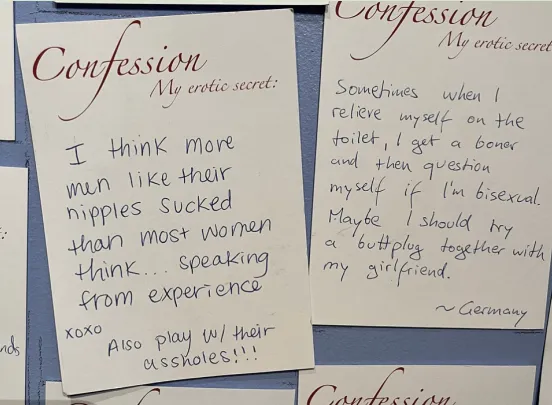 Confession
My erotic secret:
I think more
men like their
nipples sucked
than most women
think... speaking
from experience
xoxo
Also play w/ their
assholes!!!
Confession
My erotic secret
Sometimes when I
relieve myself on the
toilet, I get a boner
and then question
myself if I'm bisexual.
Maybe I should try
a buttplug together with
my girlfriend.
~ Germany
nds
Confession